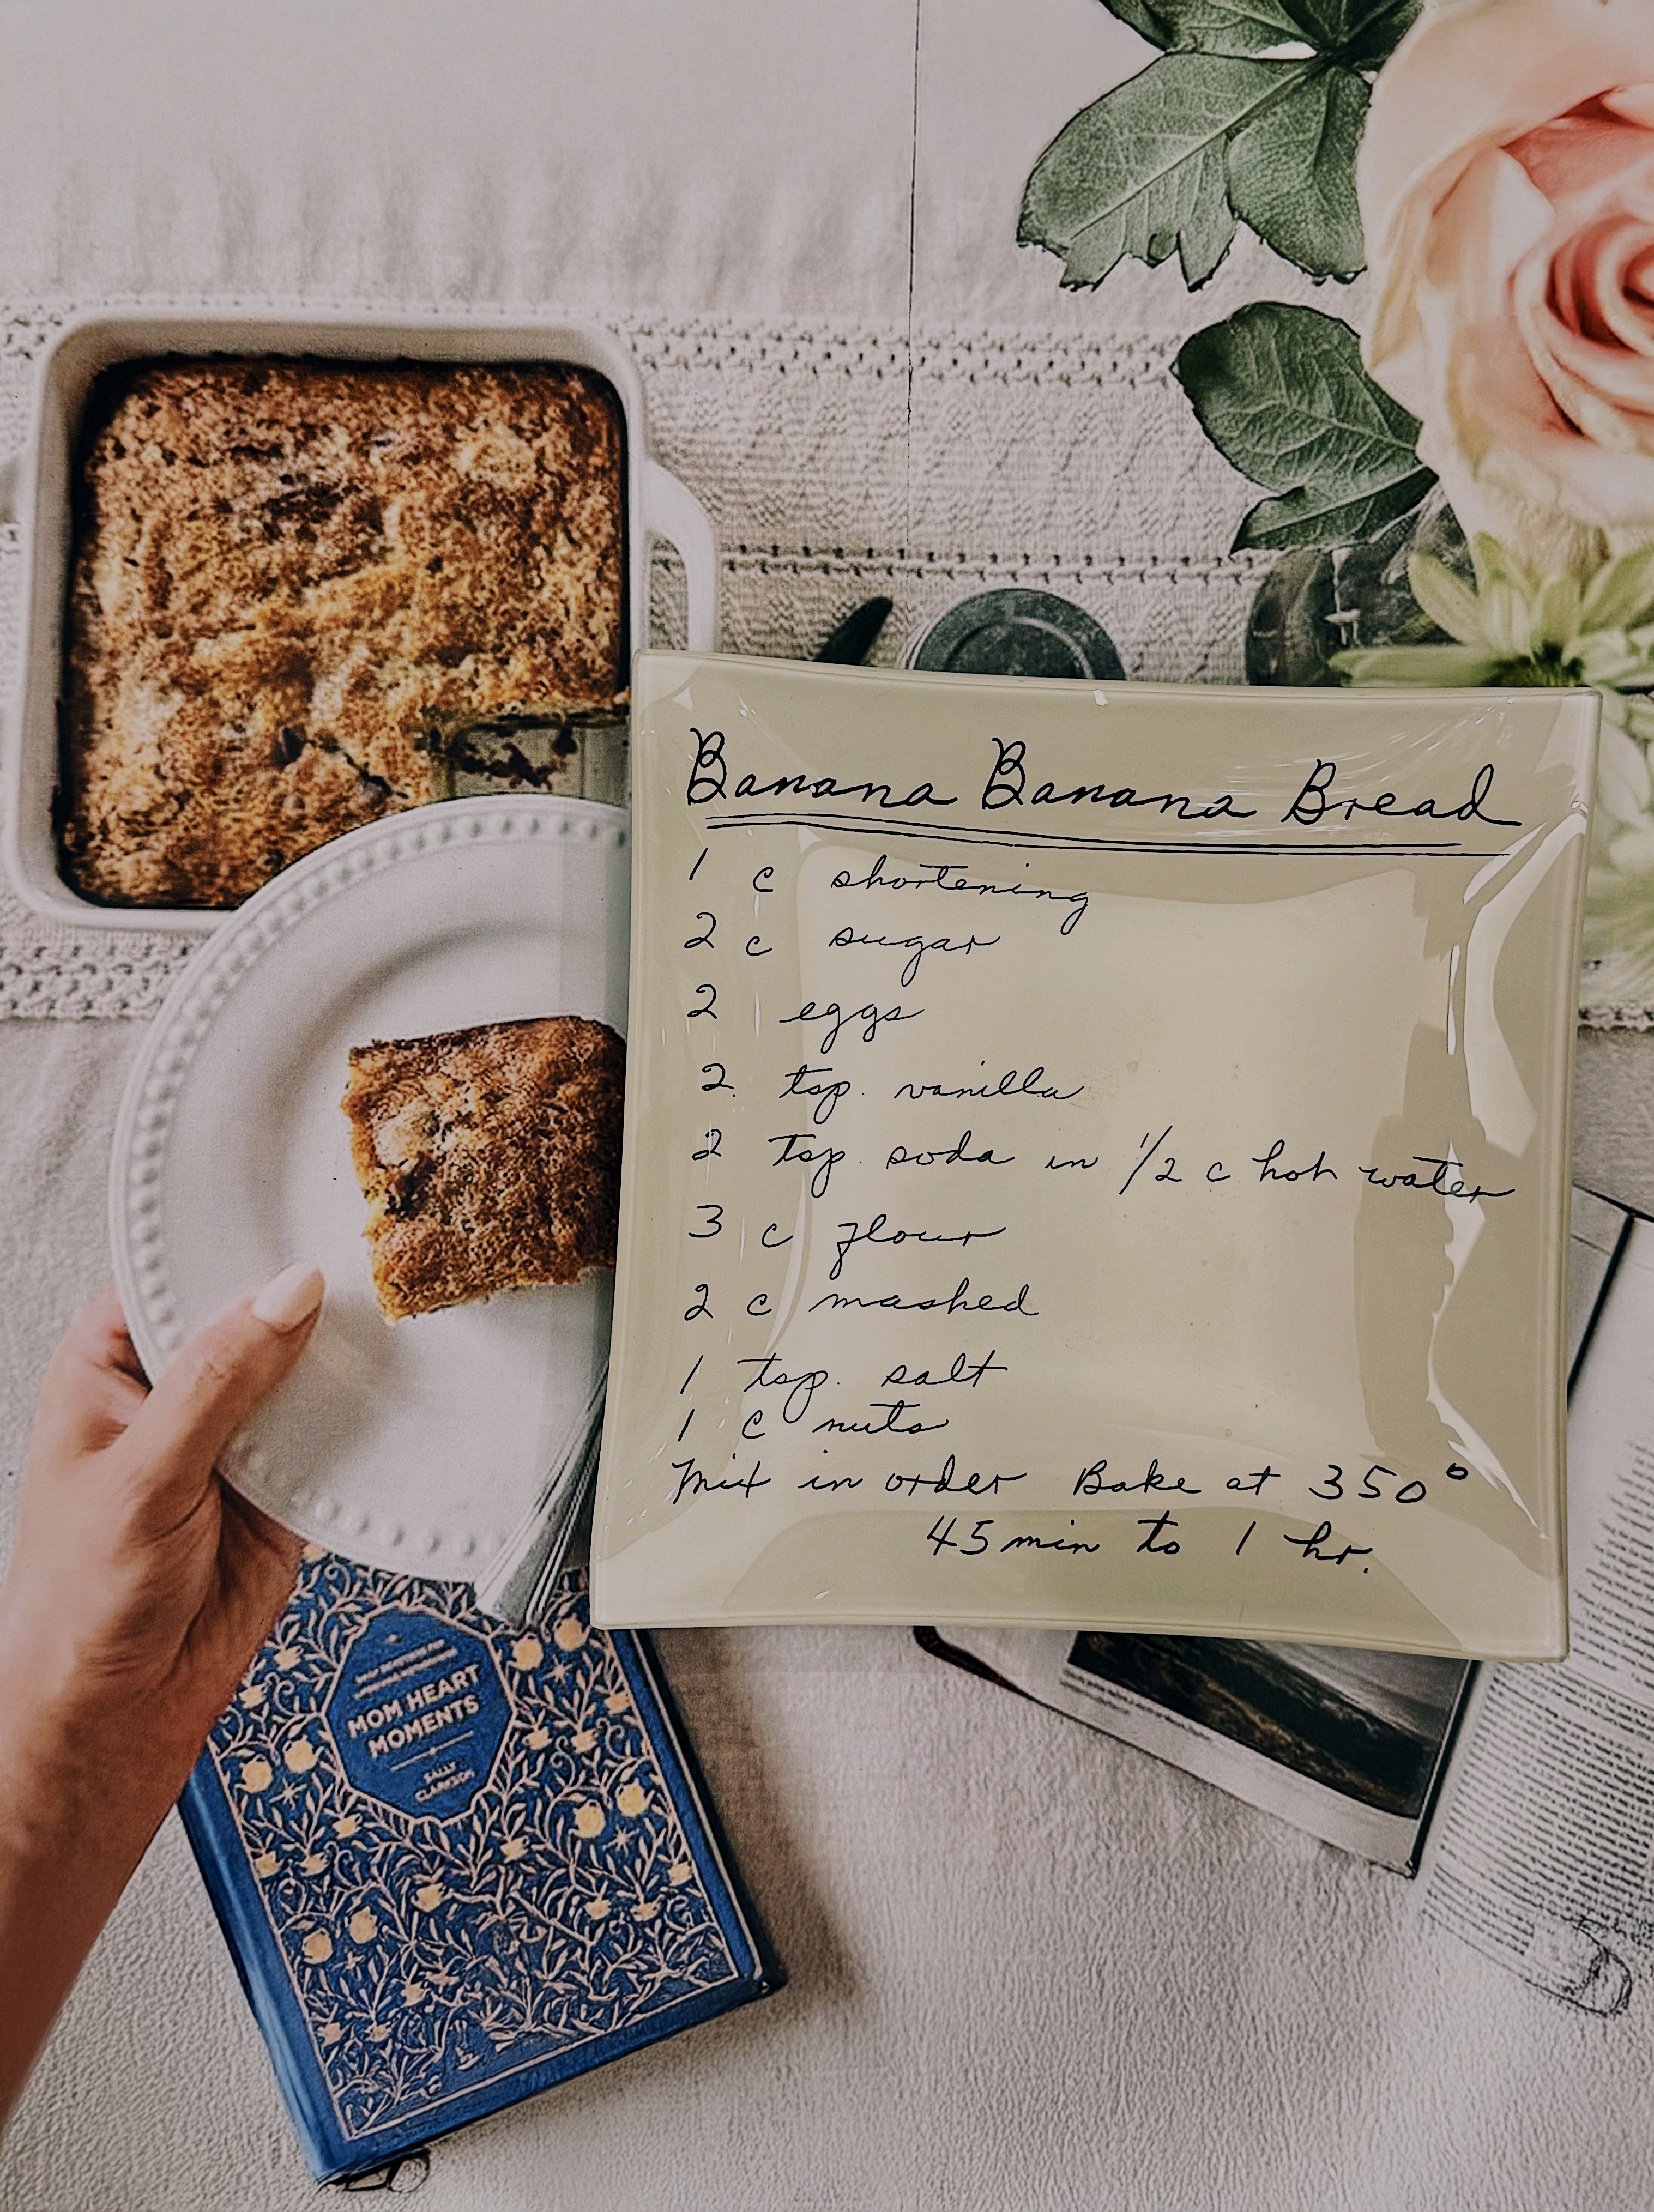 Banana Banana Bread
1 c shortening
2 c sugar
2 eggs
2 tsp. vanilla
2 tsp. soda in 1/2 c hot water
3 c flour
2 c mashed
1 tsp. salt
1 c nuts
Mix in order Bake at 350°
45 min to 1 hr.
MOM HEART
MOMENTS
SALLY
CLARKSON